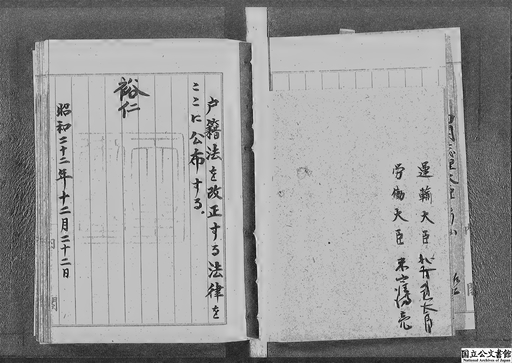 運輸大臣 北村徳太郎
労働大臣 米窪滿亮
戸籍法を改正する法律を
ここに公布する。
裕仁
昭和二十二年十二月二十二日
内閣
国立公文書館
National Archives of Japan